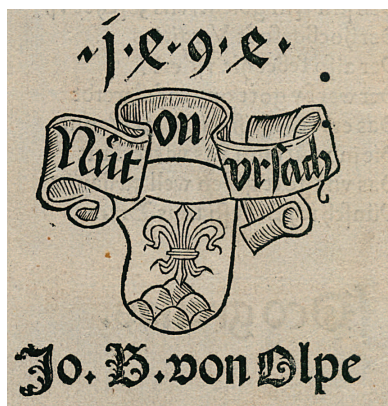 ·1·4·9·4·
Nüt on vrsach
Jo. B. von Olpe